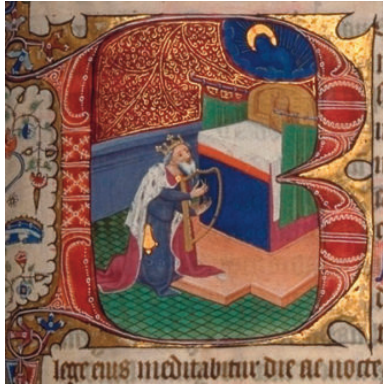 B
lege eius meditabitur die ac nocte